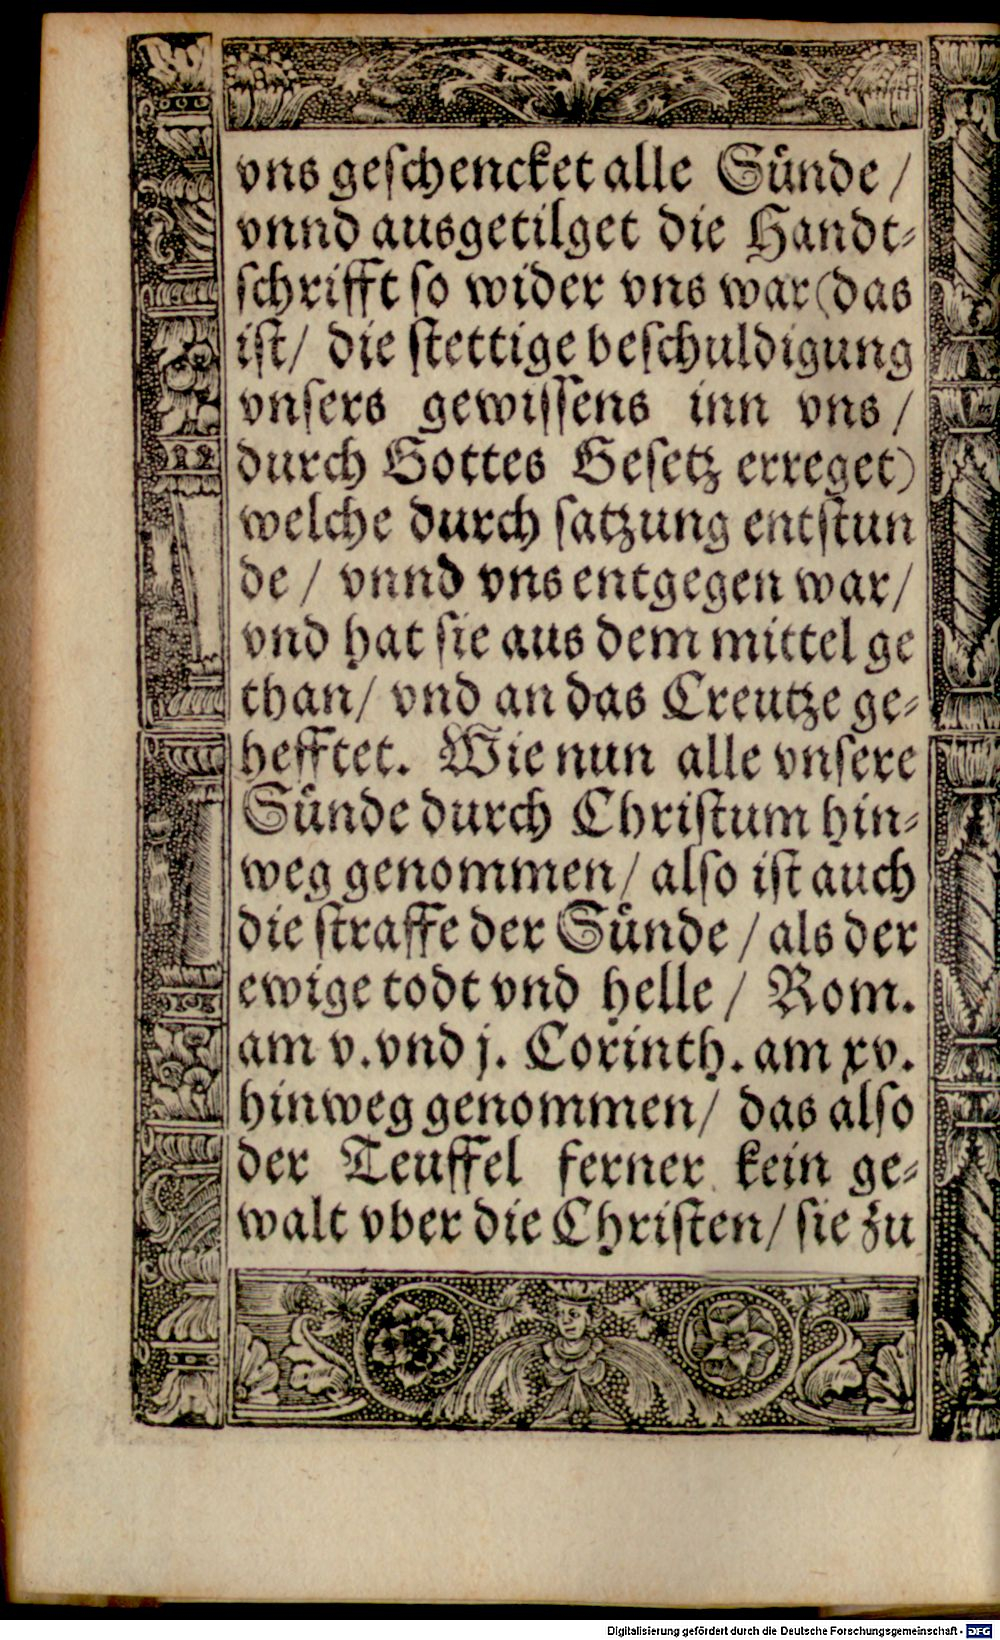 vns geschencket alle Sünde /
vnnd ausgetilget die Handt⸗
schrifft so wider vns war (das
ist / die stettige beschuldigung
vnsers gewissens inn vns /
durch Gottes Gesetz erreget)
welche durch satzung entstun
de / vnnd vns entgegen war /
vnd hat sie aus dem mittel ge
than / vnd an das Creutze ge⸗
hefftet. Wie nun alle vnsere
Sünde durch Christum hin⸗
weg genommen / also ist auch
die straffe der Sünde / als der
ewige todt vnd helle / Rom.
am v. vnd j. Corinth. am xv.
hinweg genommen / das also
der Teuffel ferner kein ge⸗
walt vber die Christen / sie zu
Digitalisierung gefördert durch die Deutsche Forschungsgemeinschaft - DFG